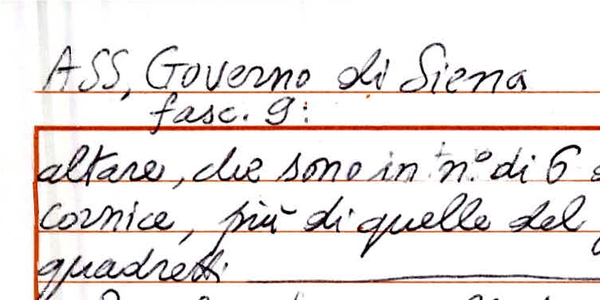 ASS, Governo di Siena
fasc. 9:
altare, che sono in n° di 6
cornice, più di quelle del
quadretti